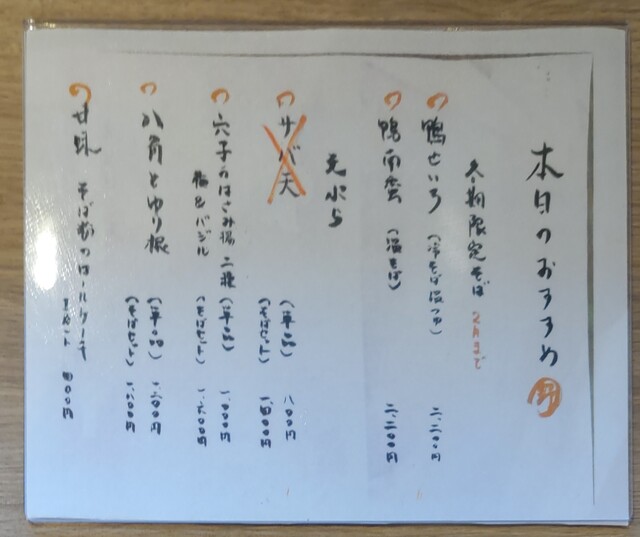 本日のおすすめ
冬期限定そば 2月まで
鴨せいろ (冷そば温つゆ) 二、二〇〇円
鴨南蛮 (温そば) 二、二〇〇円
天ぷら
サバ天 (単品) 八〇〇円
(そばセット) 一、四〇〇円
穴子のはさみ揚 二種 (単品) 一、〇〇〇円
梅&バジル (そばセット) 一、六〇〇円
八角とゆり根 (単品) 一、二〇〇円
(そばセット) 一、八〇〇円
甘味 そば粉のロールケーキ
四〇〇円